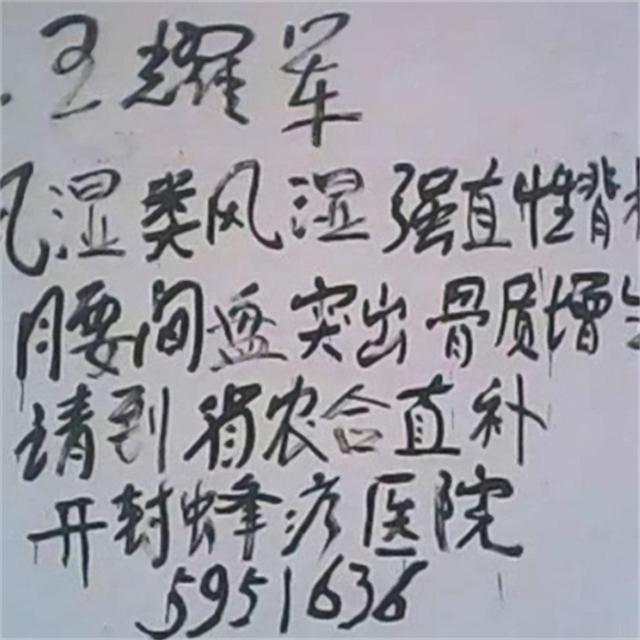 王耀军
风湿类风湿强直性背
腰间盘突出骨质增
请到省农合直补
开封蜂疗医院
5951636